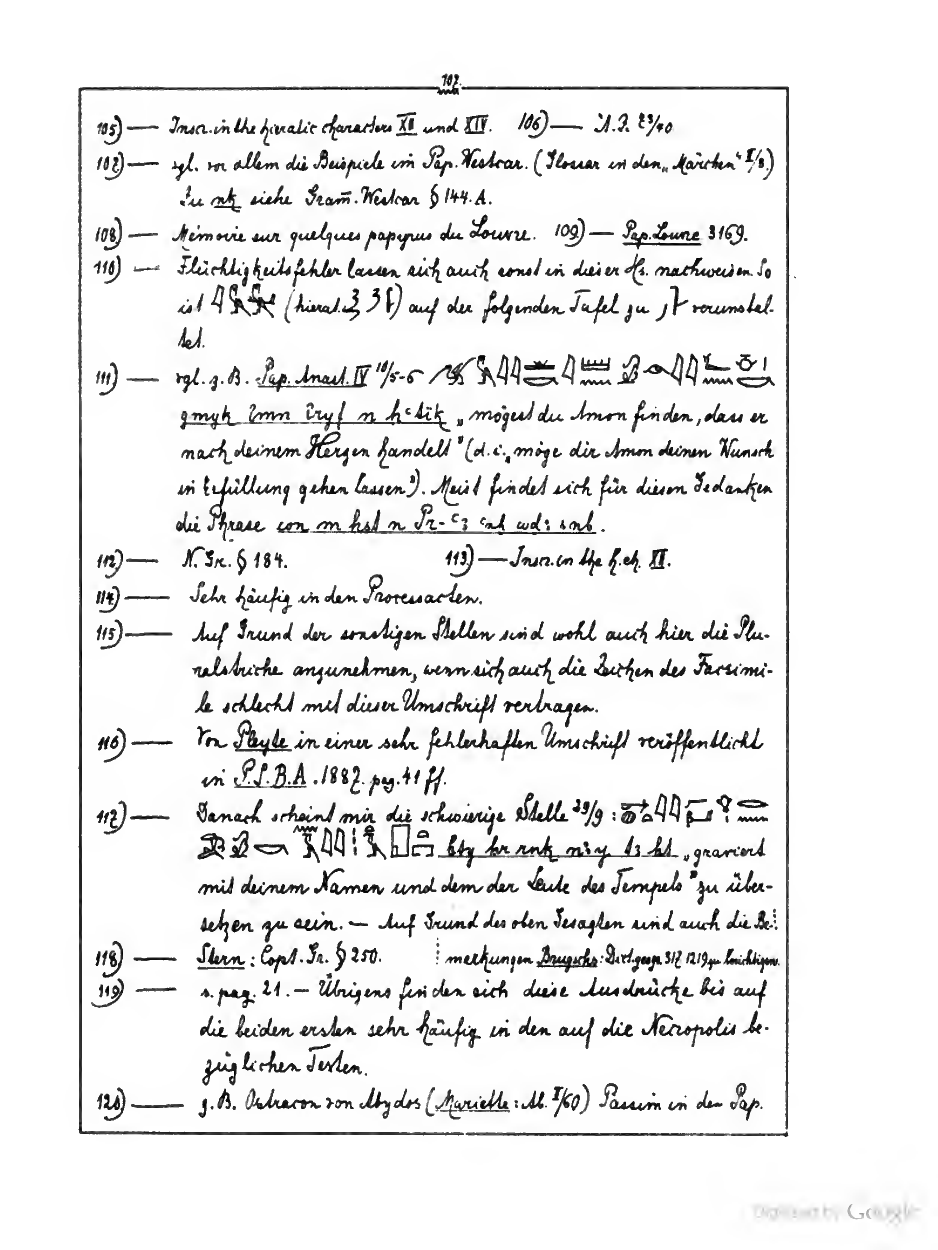 107.
105) — Inscr. in the hieratic characters XII und XIV. 106) — A.Z. 29/40
107) — vgl. vor allem die Beispiele im Pap. Westcar. (Glossar in den „Märchen“ I/8.)
Zu nk siehe Gram̄. Westcar § 144. A.
108) — Mémoire sur quelques papyrus du Louvre. 109) — Pap. Louvre 3169.
110) — Flüchtigkeitsfehler lassen sich auch sonst in dieser Hs. nachweisen. So
ist (hierat. ) auf der folgenden Tafel zu verunstal-
tet.
111) — vgl. z. B. Pap. Anast. IV 10/5-6
gmyk n „mögest du Amon finden, dass er
nach deinem Herzen handelt“ (d. i. „möge dir Amon deinen Wunsch
in Erfüllung gehen lassen“). Meist findet sich für diesen Gedanken
die Phrase von m hst n Pr-
112) — N. Gr. § 184. 113) — Inscr. in the h. ch. XII.
114) — Sehr häufig in den Processacten.
115) — Auf Grund der sonstigen Stellen sind wohl auch hier die Plu-
ralstriche anzunehmen, wenn sich auch die Zeichen des Facsimi-
le schlecht mit dieser Umschrift vertragen.
116) — Von Pleyte in einer sehr fehlerhaften Umschrift veröffentlicht
in P.S.B.A. 1887. pag. 41 ff.
117) — Danach scheint mir die schwierige Stelle 29/9 :
hr rnk „graviert
mit deinem Namen und dem der Leute des Tempels“ zu über-
setzen zu sein. — Auf Grund des oben Gesagten sind auch die Be-
118) — Stern: Copt. Gr. § 250. merkungen Brugschs: Dict. geogr. 317 1219 zu berichtigen.
119) — s. pag. 21. — Übrigens finden sich diese Ausdrücke bis auf
die beiden ersten sehr häufig in den auf die Necropolis be-
züglichen Texten.
120) — z. B. Ostracon von Abydos (Mariette: Ab. I/60) Passim in den Pap.
Digitized by Google